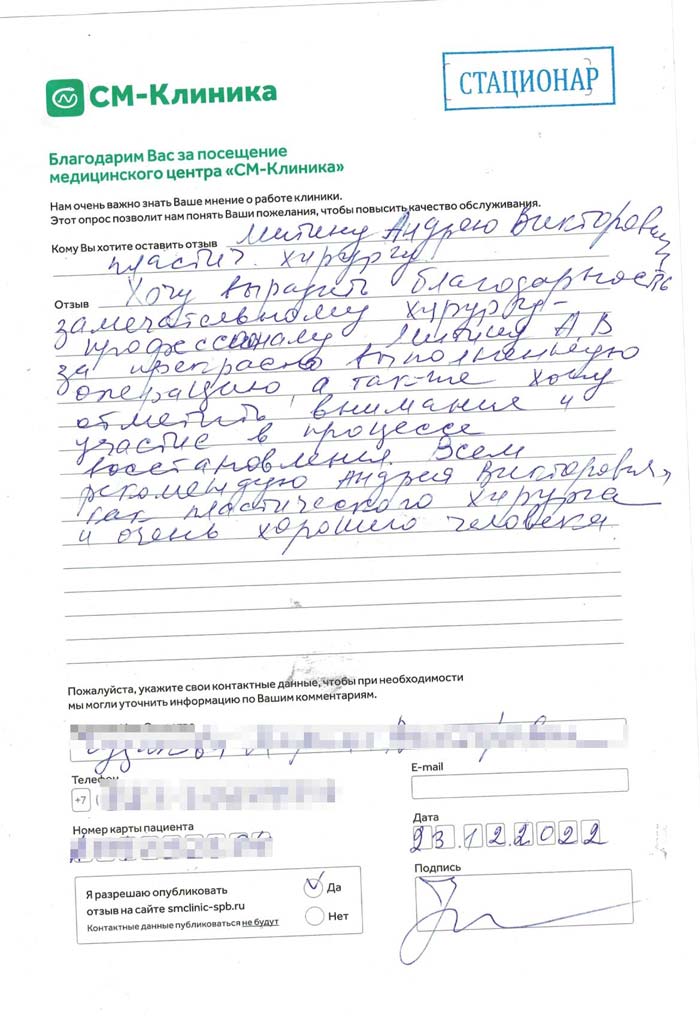 СМ-Клиника
СТАЦИОНАР
Благодарим Вас за посещение
медицинского центра «СМ-Клиника»
Нам очень важно знать Ваше мнение о работе клиники.
Этот опрос позволит нам понять Ваши пожелания, чтобы повысить качество обслуживания.
Кому Вы хотите оставить отзыв Митину Андрею Викторовичу
пластич. хирургу
Отзыв Хочу выразить благодарность
замечательному хирургу-
професcионалу Митину А.В
за прекрасно выполненную
операцию, а так-же хочу
отметить внимание и
участие в процессе
восстановления. Всем
рекомендую Андрея Викторовича,
как пластического хирурга
и очень хорошего человека
Пожалуйста, укажите свои контактные данные, чтобы при необходимости
мы могли уточнить информацию по Вашим комментариям.
Телефон
+7
E-mail
Номер карты пациента
Дата
23.12.2022
Подпись
Я разрешаю опубликовать
отзыв на сайте smclinic-spb.ru
Контактные данные публиковаться не будут
Да
Нет